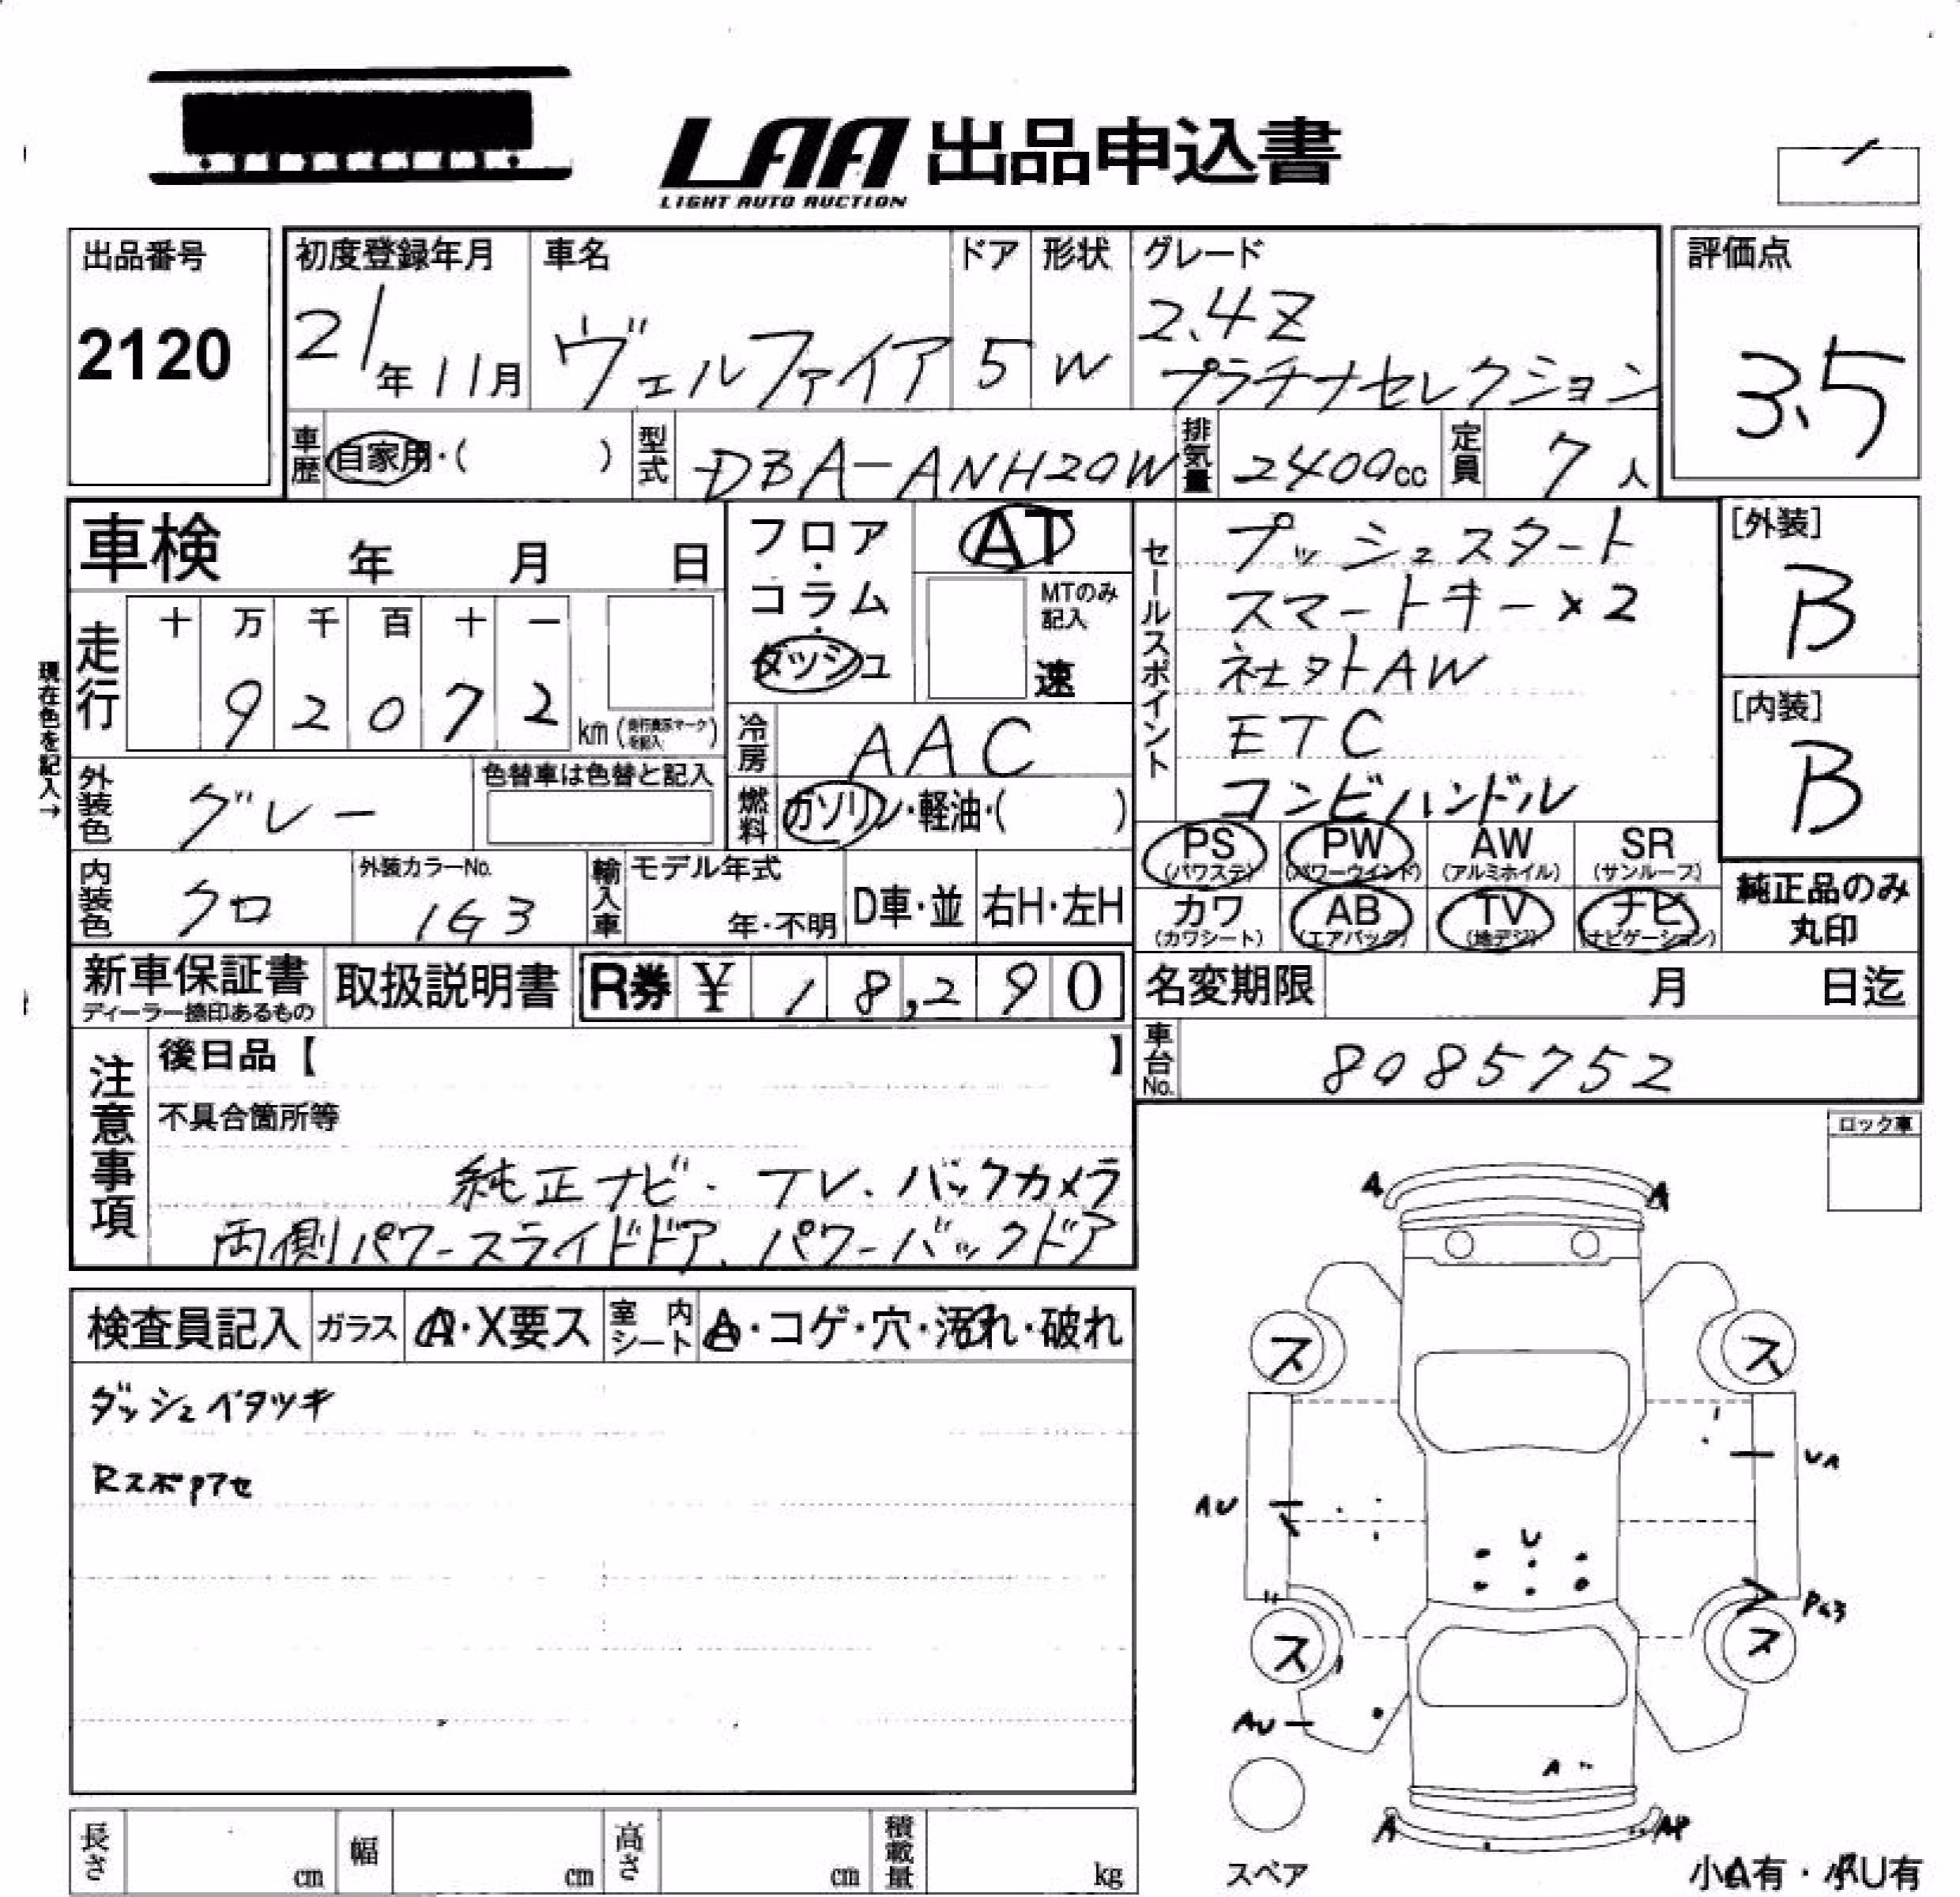 LAA 出品申込書
LIGHT AUTO AUCTION
出品番号
2120
初度登録年月
21年11月
車名
ヴェルファイア
ドア
5
形状
W
グレード
2.4Z
プラチナセレクション
評価点
3.5
車歴 自家用・( )
型式 DBA-ANH20W
排気量 2400cc
定員 7人
車検 年 月 日
フロア・コラム・ダッシュ
AT
MTのみ記入
速
セールスポイント
プッシュスタート
スマートキー×2
ETC
コンビハンドル
[外装]
B
[内装]
B
現在色を記入→
走行
十 万 千 百 十 一
9 2 0 7 2
km
冷房 AAC
燃料 ガソリン・軽油・( )
外装色 グレー
色替車は色替と記入
内装色 クロ
外装カラーNo.
1G3
輸入車
モデル年式
年・不明
D車・並
右H・左H
PS (パワステ)
PW (パワーウインド)
AW (アルミホイル)
SR (サンルーフ)
カワ (カワシート)
AB (エアバッグ)
TV (地デジ)
ナビ (ナビゲーション)
純正品のみ
丸印
新車保証書
ディーラー捺印あるもの
取扱説明書
R券 ¥ 18,290
名変期限 月 日迄
車台No. 8085752
注意事項
後日品【 】
不具合箇所等
純正ナビ・TV.バックカメラ
両側パワースライドドア、パワーバックドア
ロック車
検査員記入
ガラス A・X要ス
室内シート A・コゲ・穴・汚れ・破れ
ダッシュベタツキ
A A
ス ス
UA
AU
U
ス ス
AU
A
A AP
スペア
長さ cm
幅 cm
高さ cm
積載量 kg
小A有・小U有